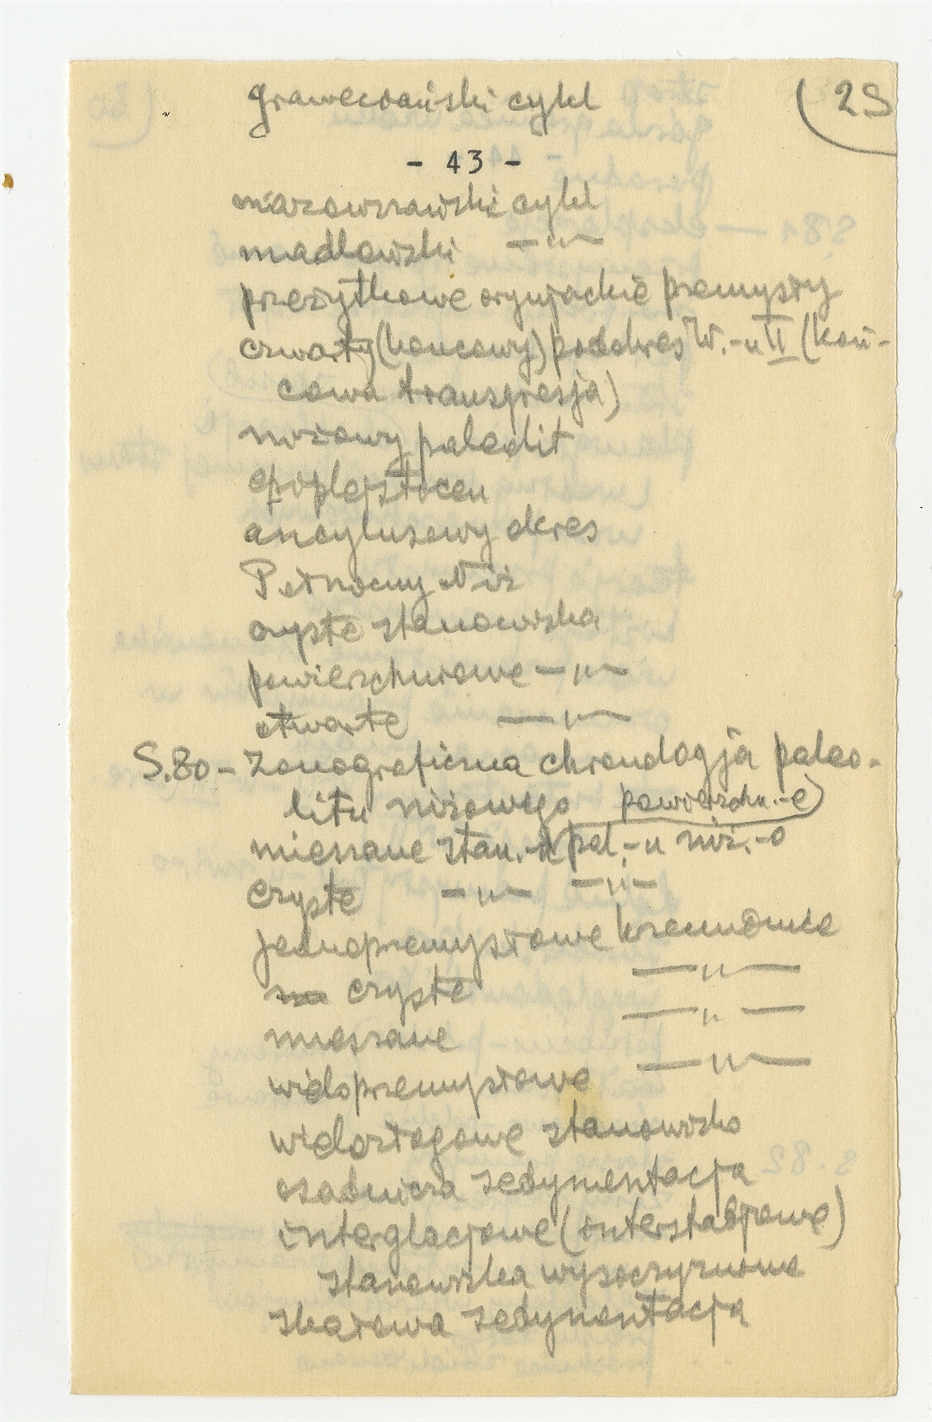 grawecoański cykl (29
- 43 -
mazowszański cykl
madlowski -„-
przeżytkowe oryniackie przemysły
czwarty (końcowy) podokres W.-u II (koń-
cowa transgresja)
niżowy paleolit
epoplejstocen
ancylusowy okres
Północny Niż
czyste stanowiska
powierzchniowe -„-
otwarte -„-
S.80 - Zonograficzna chronologja paleo-
litu niżowego
powierzchn.-e)
mieszane stan.-a pal.-u niż.-o
czyste -„- -„-
jednoprzemysłowe krzemienice
czyste -„-
mieszane -„-
wieloprzemysłowe -„-
wielożłogowe stanowisko
osadnicza sedymentacja
interglacjowe (interstadjowe)
stanowiska wysoczyznowe
skałowa sedymentacja